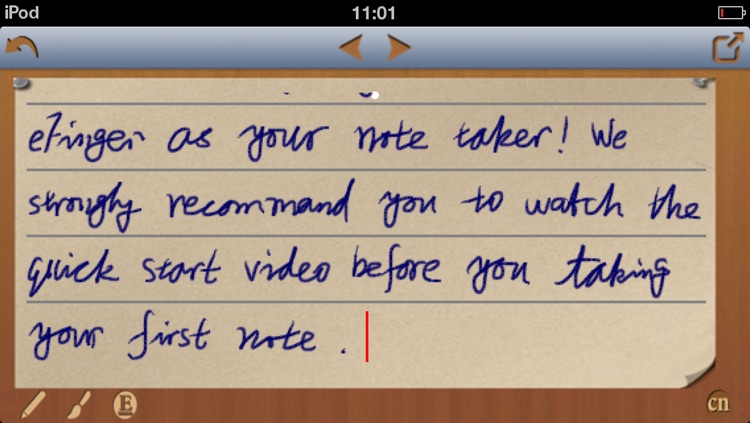 iPod 11:01
eFinger as your note taker! We
strongly recommand you to watch the
quick start video before you taking
your first note.
E cn